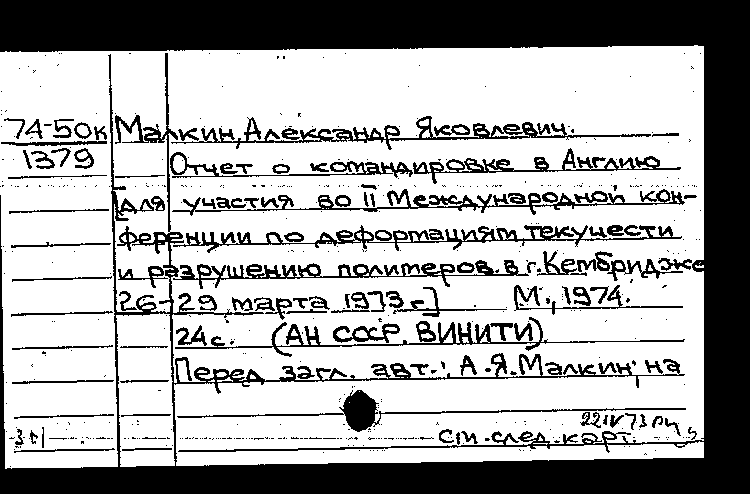 74-50к Малкин, Александр Яковлевич.
1379 Отчет о командировке в Англию
[для участия во II Международной кон-
ференции по деформациям, текучести
и разрушению полимеров в г. Кембридже
26-29 марта 1973 г.] М., 1974.
24с. (АН СССР. ВИНИТИ).
Перед загл. авт.: А.Я. Малкин; на
См. след. карт.